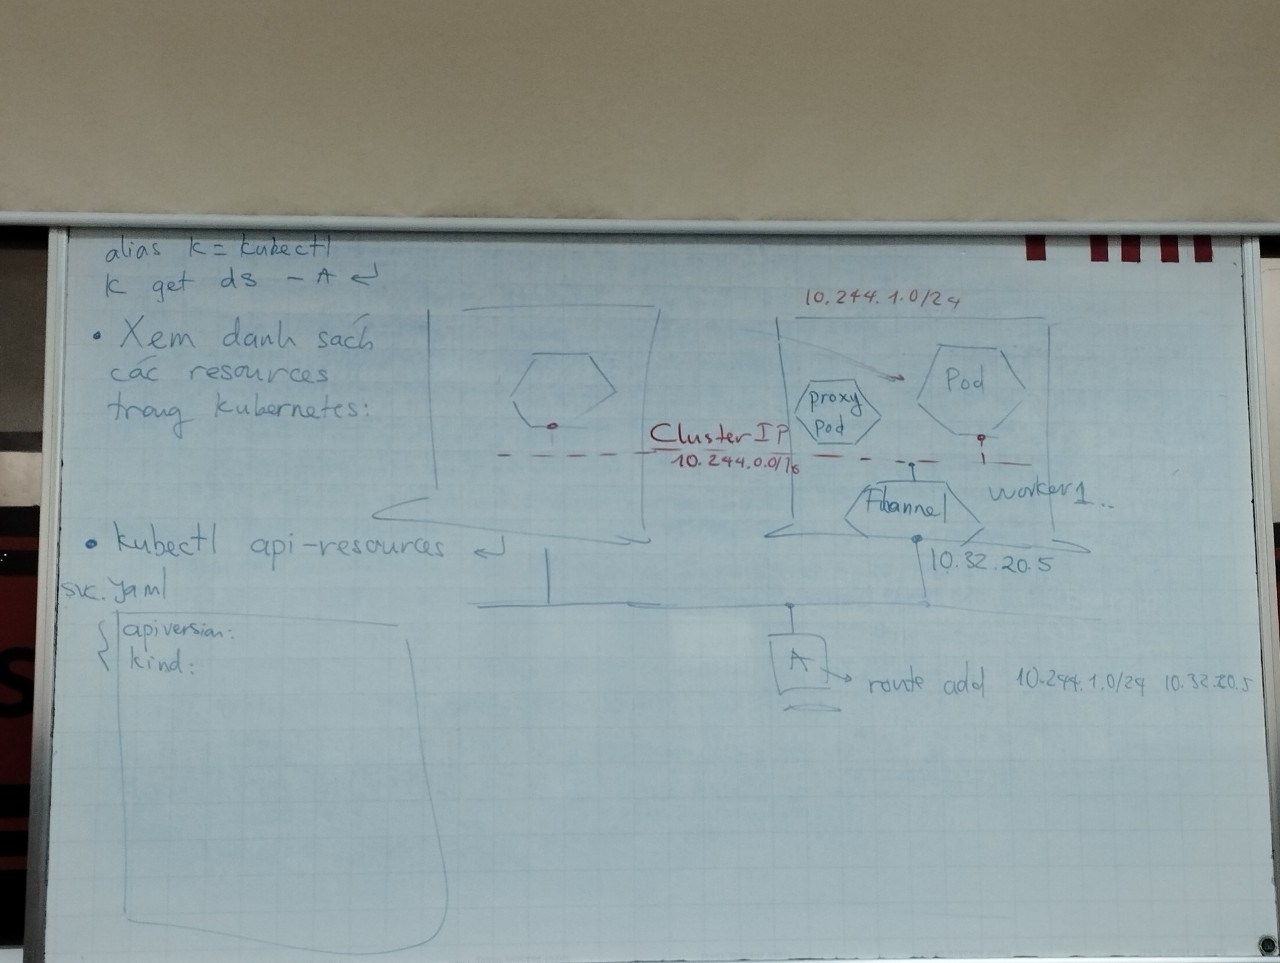 alias k = kubectl
k get ds - A ↵
• Xem danh sách
các resources
trong kubernetes:
• kubectl api-resources ↵
svc.yaml
apiversion:
kind:
10.244.1.0/24
Pod
proxy
pod
ClusterIP
10.244.0.0/16
Flannel
worker1..
10.32.20.5
A
route add 10.244.1.0/24 10.32.20.5